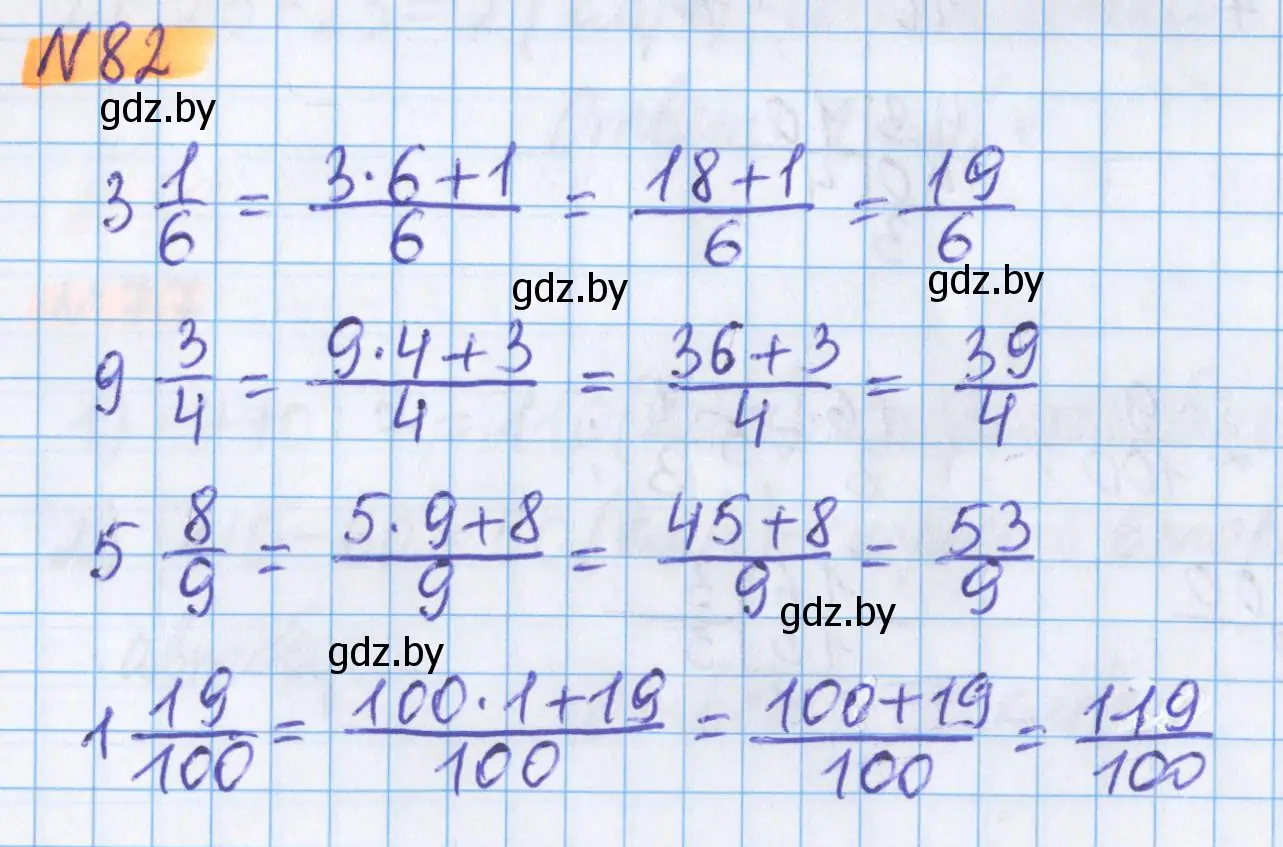 N 82
gdz.by
3 1/6 = 3·6+1/6 = 18+1/6 = 19/6
gdz.by gdz.by
9 3/4 = 9·4+3/4 = 36+3/4 = 39/4
5 8/9 = 5·9+8/9 = 45+8/9 = 53/9
gdz.by
gdz.by
1 19/100 = 100·1+19/100 = 100+19/100 = 119/100